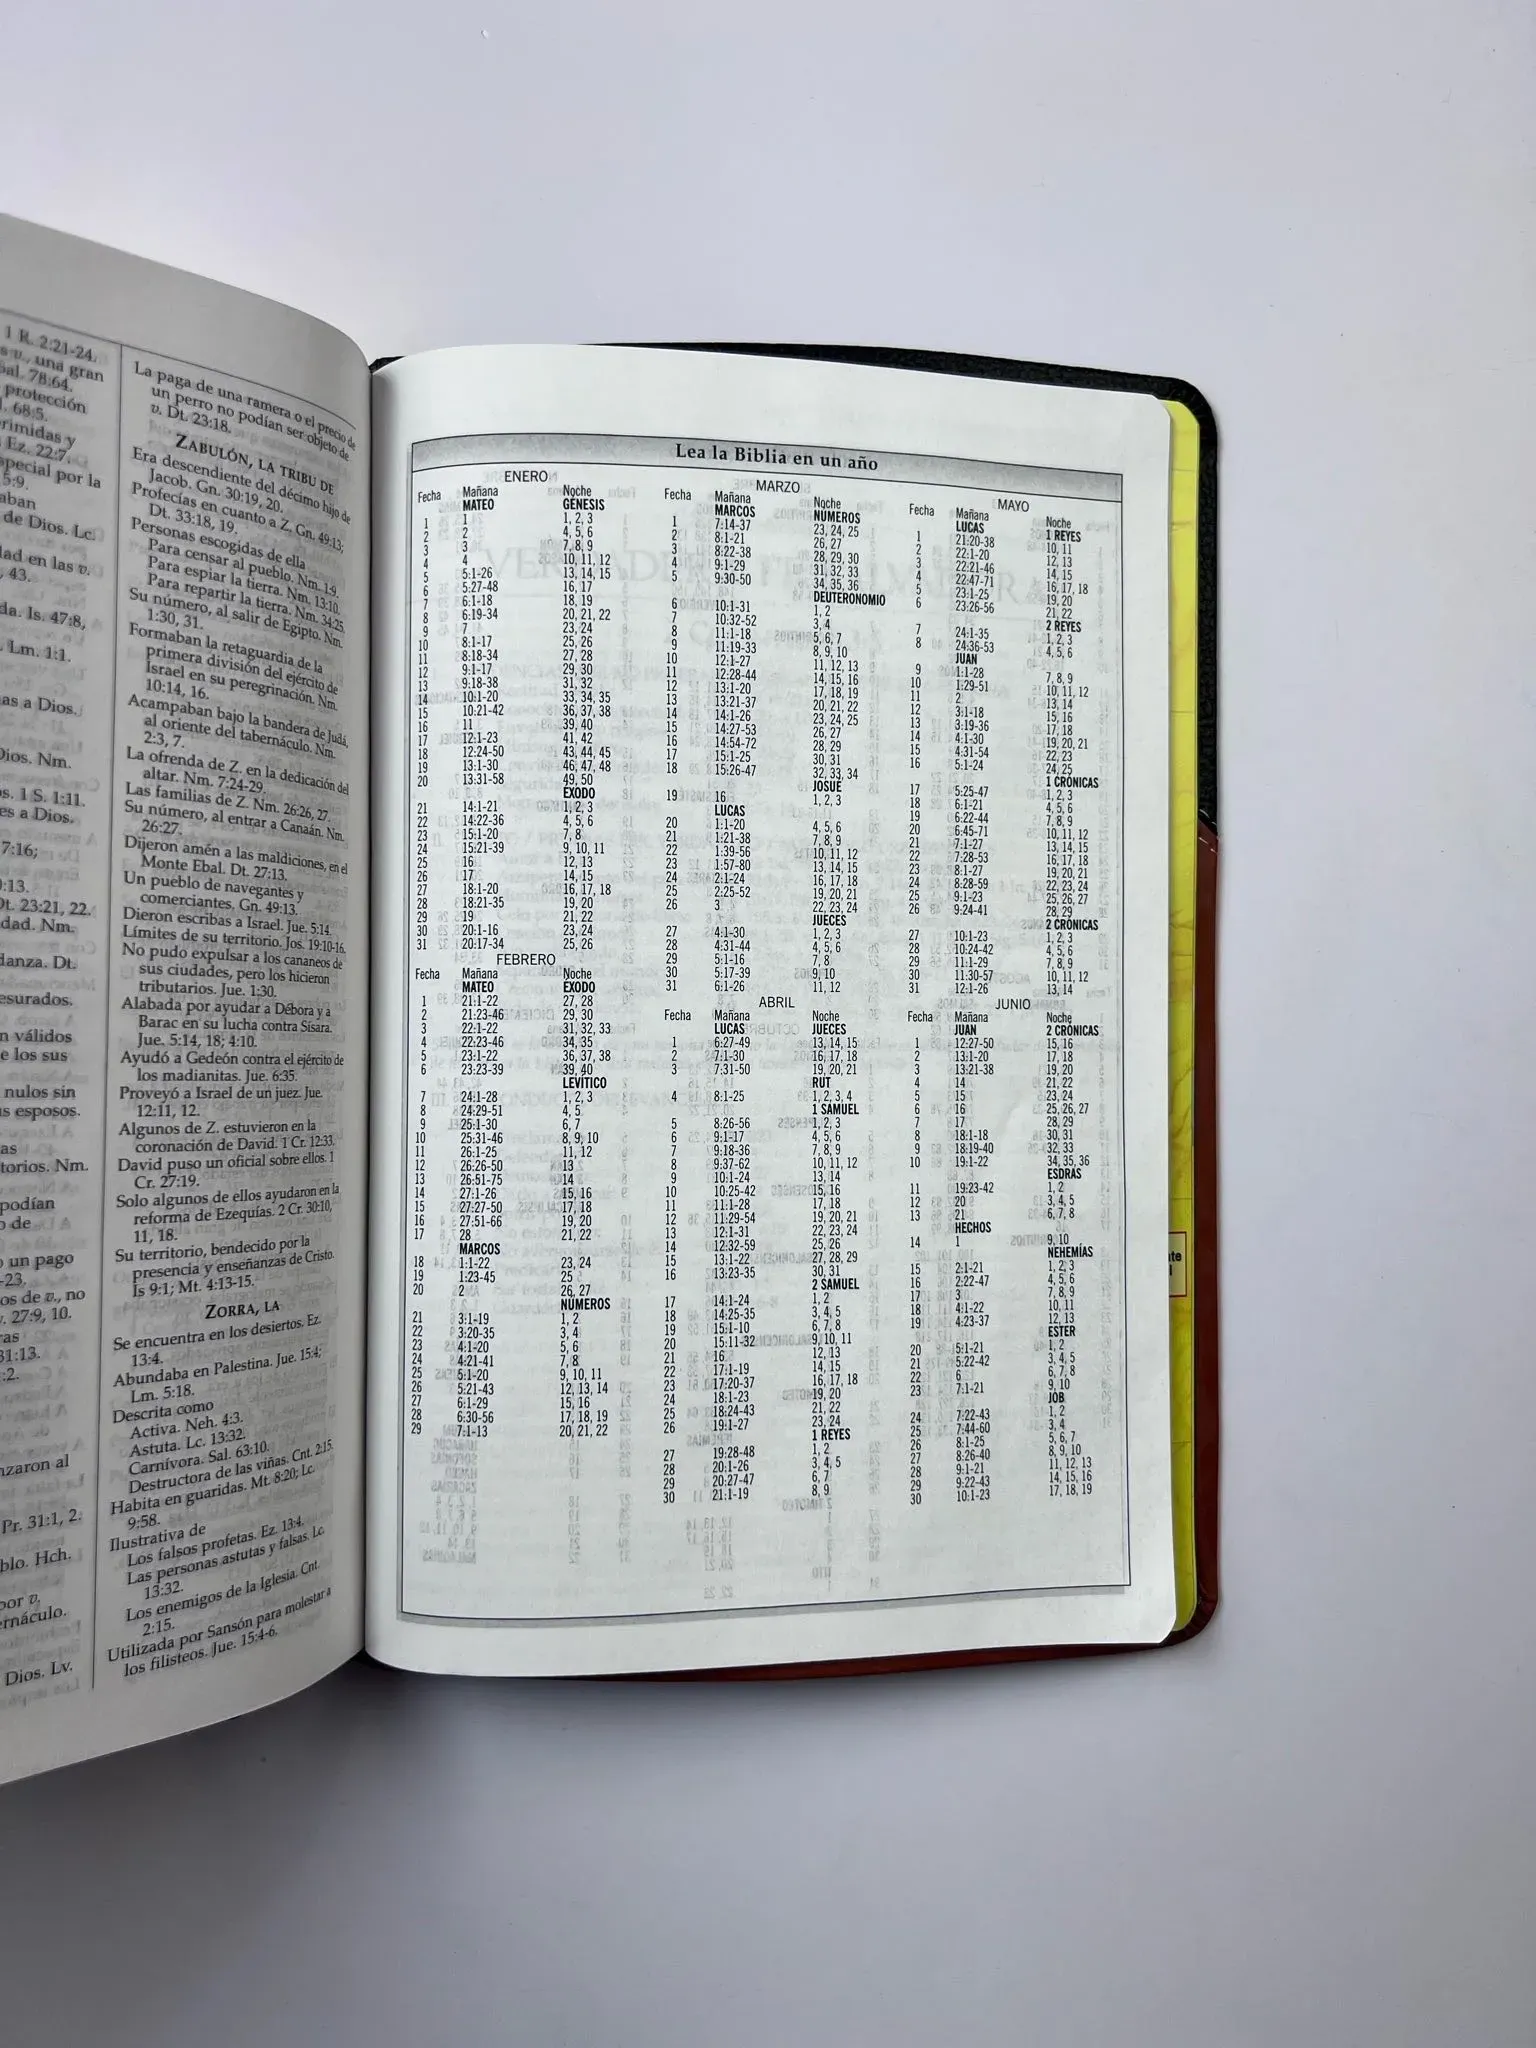 1 R. 2:21-24.
s v., una gran
Sal. 78:64.
protección
. 68:5.
rimidas y
Ez. 22:7.
special por la
5:9.
aban
de Dios. Lc.
dad en las v.
, 43.
da. Is. 47:8,
. Lm. 1:1.
nas a Dios.
Dios. Nm.
os. 1 S. 1:11.
es a Dios.
7:16;
0:13.
Dt. 23:21, 22.
dad. Nm.
danza. Dt.
esurados.
n válidos
e los sus
nulos sin
s esposos.
as
torios. Nm.
podían
o de
o un pago
-23.
os de v., no
v. 27:9, 10.
ras
31:13.
:2.
nzaron al
Pr. 31:1, 2.
blo. Hch.
por v.
ernáculo.
Dios. Lv.
La paga de una ramera o el precio de
un perro no podían ser objeto de
v. Dt. 23:18.
ZABULÓN, LA TRIBU DE
Era descendiente del décimo hijo de
Jacob. Gn. 30:19, 20.
Profecías en cuanto a Z. Gn. 49:13;
Dt. 33:18, 19.
Personas escogidas de ella
Para censar al pueblo. Nm. 1:9.
Para espiar la tierra. Nm. 13:10.
Para repartir la tierra. Nm. 34:25.
Su número, al salir de Egipto. Nm.
1:30, 31.
Formaban la retaguardia de la
primera división del ejército de
Israel en su peregrinación. Nm.
10:14, 16.
Acampaban bajo la bandera de Judá,
al oriente del tabernáculo. Nm.
2:3, 7.
La ofrenda de Z. en la dedicación del
altar. Nm. 7:24-29.
Las familias de Z. Nm. 26:26, 27.
Su número, al entrar a Canaán. Nm.
26:27.
Dijeron amén a las maldiciones, en el
Monte Ebal. Dt. 27:13.
Un pueblo de navegantes y
comerciantes. Gn. 49:13.
Dieron escribas a Israel. Jue. 5:14.
Límites de su territorio. Jos. 19:10-16.
No pudo expulsar a los cananeos de
sus ciudades, pero los hicieron
tributarios. Jue. 1:30.
Alabada por ayudar a Débora y a
Barac en su lucha contra Sísara.
Jue. 5:14, 18; 4:10.
Ayudó a Gedeón contra el ejército de
los madianitas. Jue. 6:35.
Proveyó a Israel de un juez. Jue.
12:11, 12.
Algunos de Z. estuvieron en la
coronación de David. 1 Cr. 12:33.
David puso un oficial sobre ellos. 1
Cr. 27:19.
Solo algunos de ellos ayudaron en la
reforma de Ezequías. 2 Cr. 30:10,
11, 18.
Su territorio, bendecido por la
presencia y enseñanzas de Cristo.
Is 9:1; Mt. 4:13-15.
ZORRA, LA
Se encuentra en los desiertos. Ez.
13:4.
Abundaba en Palestina. Jue. 15:4;
Lm. 5:18.
Descrita como
Activa. Neh. 4:3.
Astuta. Lc. 13:32.
Carnívora. Sal. 63:10.
Destructora de las viñas. Cnt. 2:15.
Habita en guaridas. Mt. 8:20; Lc.
9:58.
Ilustrativa de
Los falsos profetas. Ez. 13:4.
Las personas astutas y falsas. Lc.
13:32.
Los enemigos de la Iglesia. Cnt.
2:15.
Utilizada por Sansón para molestar a
los filisteos. Jue. 15:4-6.
Lea la Biblia en un año
ENERO
Fecha Mañana Noche
MATEO GÉNESIS
1 1 1, 2, 3
2 2 4, 5, 6
3 3 7, 8, 9
4 4 10, 11, 12
5 5:1-26 13, 14, 15
6 5:27-48 16, 17
7 6:1-18 18, 19
8 6:19-34 20, 21, 22
9 7 23, 24
10 8:1-17 25, 26
11 8:18-34 27, 28
12 9:1-17 29, 30
13 9:18-38 31, 32
14 10:1-20 33, 34, 35
15 10:21-42 36, 37, 38
16 11 39, 40
17 12:1-23 41, 42
18 12:24-50 43, 44, 45
19 13:1-30 46, 47, 48
20 13:31-58 49, 50
ÉXODO
21 14:1-21 1, 2, 3
22 14:22-36 4, 5, 6
23 15:1-20 7, 8
24 15:21-39 9, 10, 11
25 16 12, 13
26 17 14, 15
27 18:1-20 16, 17, 18
28 18:21-35 19, 20
29 19 21, 22
30 20:1-16 23, 24
31 20:17-34 25, 26
FEBRERO
Fecha Mañana Noche
MATEO ÉXODO
1 21:1-22 27, 28
2 21:23-46 29, 30
3 22:1-22 31, 32, 33
4 22:23-46 34, 35
5 23:1-22 36, 37, 38
6 23:23-39 39, 40
LEVÍTICO
7 24:1-28 1, 2, 3
8 24:29-51 4, 5
9 25:1-30 6, 7
10 25:31-46 8, 9, 10
11 26:1-25 11, 12
12 26:26-50 13
13 26:51-75 14
14 27:1-26 15, 16
15 27:27-50 17, 18
16 27:51-66 19, 20
17 28 21, 22
MARCOS
18 1:1-22 23, 24
19 1:23-45 25
20 2 26, 27
NÚMEROS
21 3:1-19 1, 2
22 3:20-35 3, 4
23 4:1-20 5, 6
24 4:21-41 7, 8
25 5:1-20 9, 10, 11
26 5:21-43 12, 13, 14
27 6:1-29 15, 16
28 6:30-56 17, 18, 19
29 7:1-13 20, 21, 22
MARZO
Fecha Mañana Noche
MARCOS NÚMEROS
1 7:14-37 23, 24, 25
2 8:1-21 26, 27
3 8:22-38 28, 29, 30
4 9:1-29 31, 32, 33
5 9:30-50 34, 35, 36
DEUTERONOMIO
6 10:1-31 1, 2
7 10:32-52 3, 4
8 11:1-18 5, 6, 7
9 11:19-33 8, 9, 10
10 12:1-27 11, 12, 13
11 12:28-44 14, 15, 16
12 13:1-20 17, 18, 19
13 13:21-37 20, 21, 22
14 14:1-26 23, 24, 25
15 14:27-53 26, 27
16 14:54-72 28, 29
17 15:1-25 30, 31
18 15:26-47 32, 33, 34
JOSUÉ
19 16 1, 2, 3
LUCAS
20 1:1-20 4, 5, 6
21 1:21-38 7, 8, 9
22 1:39-56 10, 11, 12
23 1:57-80 13, 14, 15
24 2:1-24 16, 17, 18
25 2:25-52 19, 20, 21
26 3 22, 23, 24
JUECES
27 4:1-30 1, 2, 3
28 4:31-44 4, 5, 6
29 5:1-16 7, 8
30 5:17-39 9, 10
31 6:1-26 11, 12
ABRIL
Fecha Mañana Noche
LUCAS JUECES
1 6:27-49 13, 14, 15
2 7:1-30 16, 17, 18
3 7:31-50 19, 20, 21
RUT
4 8:1-25 1, 2, 3, 4
1 SAMUEL
5 8:26-56 1, 2, 3
6 9:1-17 4, 5, 6
7 9:18-36 7, 8, 9
8 9:37-62 10, 11, 12
9 10:1-24 13, 14
10 10:25-42 15, 16
11 11:1-28 17, 18
12 11:29-54 19, 20, 21
13 12:1-31 22, 23, 24
14 12:32-59 25, 26
15 13:1-22 27, 28, 29
16 13:23-35 30, 31
2 SAMUEL
17 14:1-24 1, 2
18 14:25-35 3, 4, 5
19 15:1-10 6, 7, 8
20 15:11-32 9, 10, 11
21 16 12, 13
22 17:1-19 14, 15
23 17:20-37 16, 17, 18
24 18:1-23 19, 20
25 18:24-43 21, 22
26 19:1-27 23, 24
1 REYES
27 19:28-48 1, 2
28 20:1-26 3, 4, 5
29 20:27-47 6, 7
30 21:1-19 8, 9
MAYO
Fecha Mañana Noche
LUCAS 1 REYES
1 21:20-38 10, 11
2 22:1-20 12, 13
3 22:21-46 14, 15
4 22:47-71 16, 17, 18
5 23:1-25 19, 20
6 23:26-56 21, 22
2 REYES
7 24:1-35 1, 2, 3
8 24:36-53 4, 5, 6
JUAN
9 1:1-28 7, 8, 9
10 1:29-51 10, 11, 12
11 2 13, 14
12 3:1-18 15, 16
13 3:19-36 17, 18
14 4:1-30 19, 20, 21
15 4:31-54 22, 23
16 5:1-24 24, 25
1 CRÓNICAS
17 5:25-47 1, 2, 3
18 6:1-21 4, 5, 6
19 6:22-44 7, 8, 9
20 6:45-71 10, 11, 12
21 7:1-27 13, 14, 15
22 7:28-53 16, 17, 18
23 8:1-27 19, 20, 21
24 8:28-59 22, 23, 24
25 9:1-23 25, 26, 27
26 9:24-41 28, 29
2 CRÓNICAS
27 10:1-23 1, 2, 3
28 10:24-42 4, 5, 6
29 11:1-29 7, 8, 9
30 11:30-57 10, 11, 12
31 12:1-26 13, 14
JUNIO
Fecha Mañana Noche
JUAN 2 CRÓNICAS
1 12:27-50 15, 16
2 13:1-20 17, 18
3 13:21-38 19, 20
4 14 21, 22
5 15 23, 24
6 16 25, 26, 27
7 17 28, 29
8 18:1-18 30, 31
9 18:19-40 32, 33
10 19:1-22 34, 35, 36
ESDRAS
11 19:23-42 1, 2
12 20 3, 4, 5
13 21 6, 7, 8
HECHOS
14 1 9, 10
NEHEMÍAS
15 2:1-21 1, 2, 3
16 2:22-47 4, 5, 6
17 3 7, 8, 9
18 4:1-22 10, 11
19 4:23-37 12, 13
ESTER
20 5:1-21 1, 2
21 5:22-42 3, 4, 5
22 6 6, 7, 8
23 7:1-21 9, 10
JOB
24 7:22-43 1, 2
25 7:44-60 3, 4
26 8:1-25 5, 6, 7
27 8:26-40 8, 9, 10
28 9:1-21 11, 12, 13
29 9:22-43 14, 15, 16
30 10:1-23 17, 18, 19